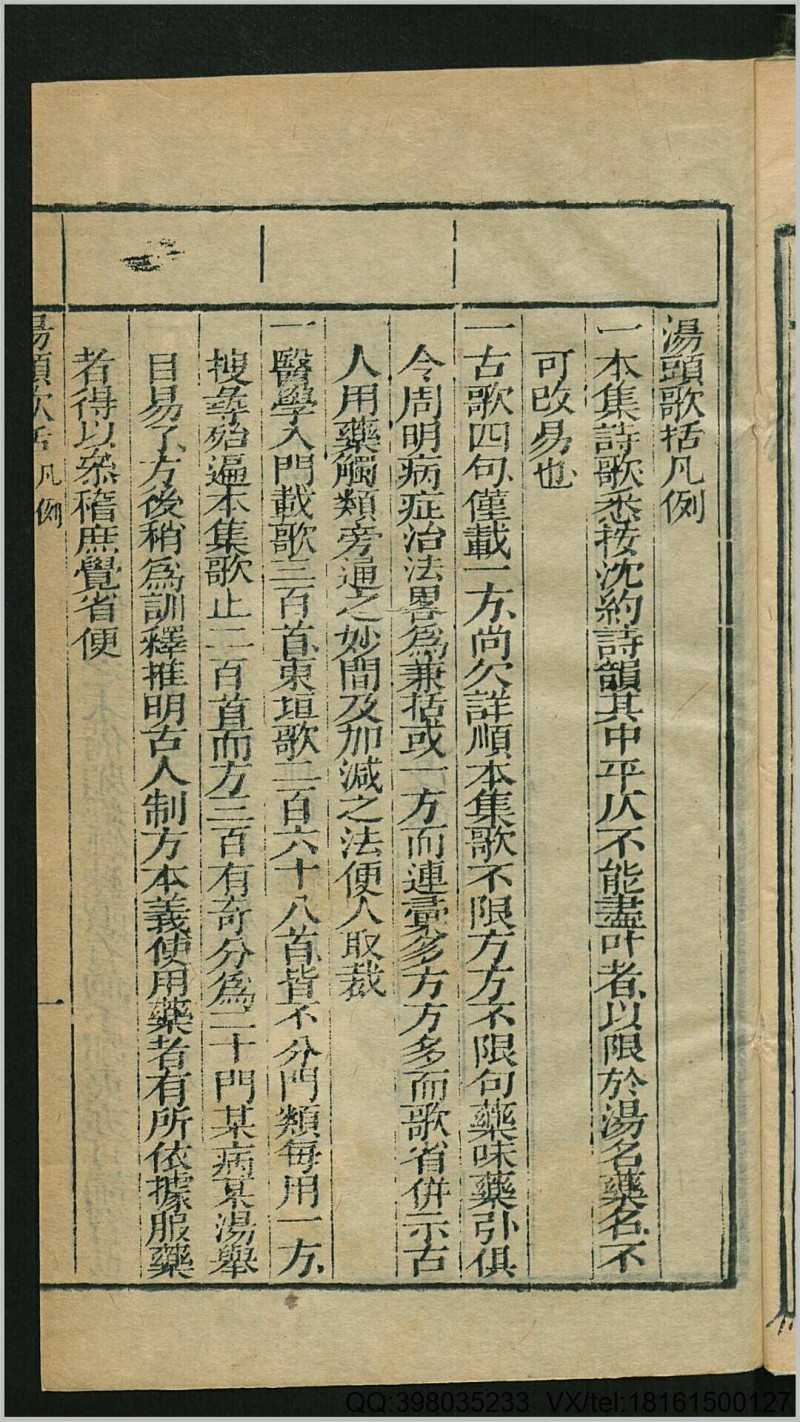 湯頭歌括凡例
一本集詩歌悉按沈約詩韻其中平仄不能盡叶者以限於湯名藥名不
可改易也
一古歌四句僅載一方尚欠詳順本集歌不限方方不限句藥味藥引俱
令周明病症治法畧爲兼括或一方而連彙多方方多而歌省併示古
人用藥觸類旁通之妙間及加減之法便人取裁
一醫學入門載歌三百首東垣歌二百六十八首皆不分門類每用一方
搜尋殆遍本集歌止二百首而方三百有奇分爲二十門某病某湯舉
目易了方後稍爲訓釋推明古人制方本義使用藥者有所依據服藥
者得以叅稽庶覺省便
湯頭歌括 凡例 一
QQ:398035233 VX/tel:18161500127